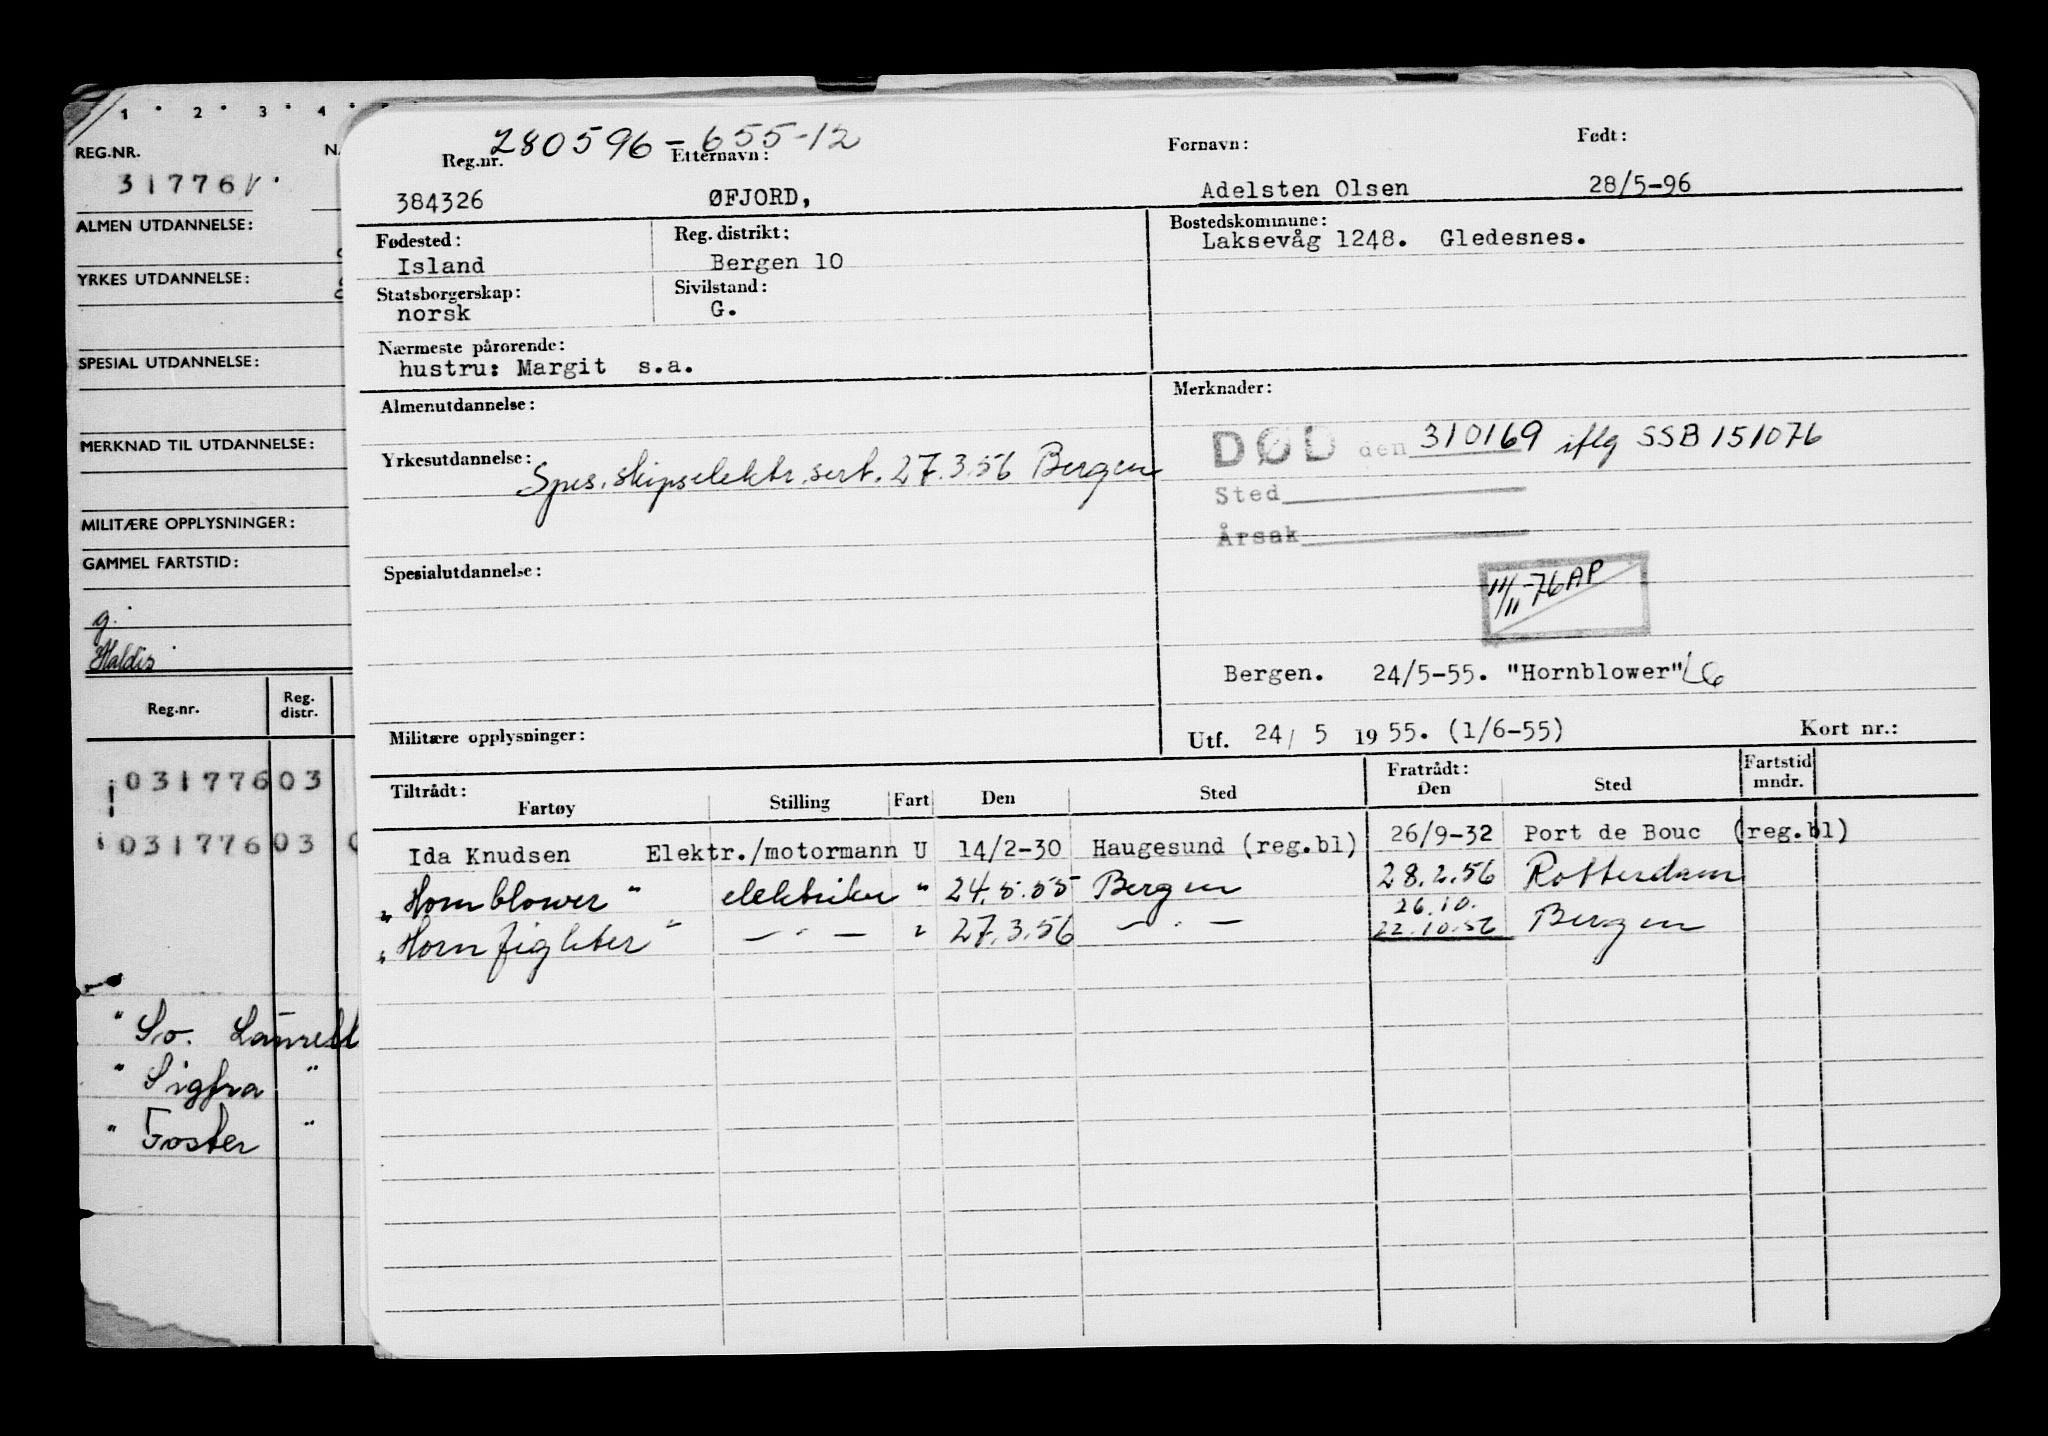 1 · 2 · 3 · 4 ·
REG.NR.
31776
ALMEN UTDANNELSE:
YRKES UTDANNELSE:
SPESIAL UTDANNELSE:
MERKNAD TIL UTDANNELSE:
MILITÆRE OPPLYSNINGER:
GAMMEL FARTSTID:
g.
Haldis
Reg.nr. Reg. distr.
03177603
03177603
" So.
" Sigfra "
" Foster "
280596-655-12
Reg.nr. Etternavn: Fornavn: Født:
384326 ØFJORD, Adelsten Olsen 28/5-96
Fødested: Reg. distrikt: Bostedskommune:
Island Bergen 10 Laksevåg 1248. Gledesnes.
Statsborgerskap: Sivilstand:
norsk G.
Nærmeste pårørende:
hustru: Margit s.a.
Almenutdannelse: Merknader:
DØD den 310169 iflg SSB 151076
Yrkesutdannelse:
Spes. skipselektr. sert. 27.3.56 Bergen
Sted
Årsak
Spesialutdannelse:
11/11-76 AP
Bergen. 24/5-55. "Hornblower" LG
Militære opplysninger:
Utf. 24/ 5 1955. (1/6-55) Kort nr.:
Tiltrådt: Fratrådt: Fartstid
Fartøy Stilling Fart Den Sted Den Sted mndr.
Ida Knudsen Elektr./motormann U 14/2-30 Haugesund (reg.bl) 26/9-32 Port de Bouc (reg.bl)
"Hornblower" elektriker " 24.5.55 Bergen 28.2.56 Rotterdam
26.10.
"Hornfighter" — " — " 27.3.56 — " — 22.10.56 Bergen